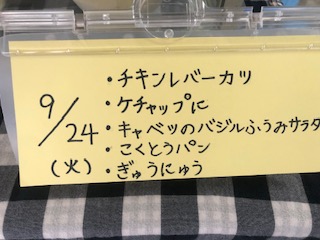 9/24
(火)
・チキンレバーカツ
・ケチャップに
・キャベツのバジルふうみサラダ
・こくとうパン
・ぎゅうにゅう